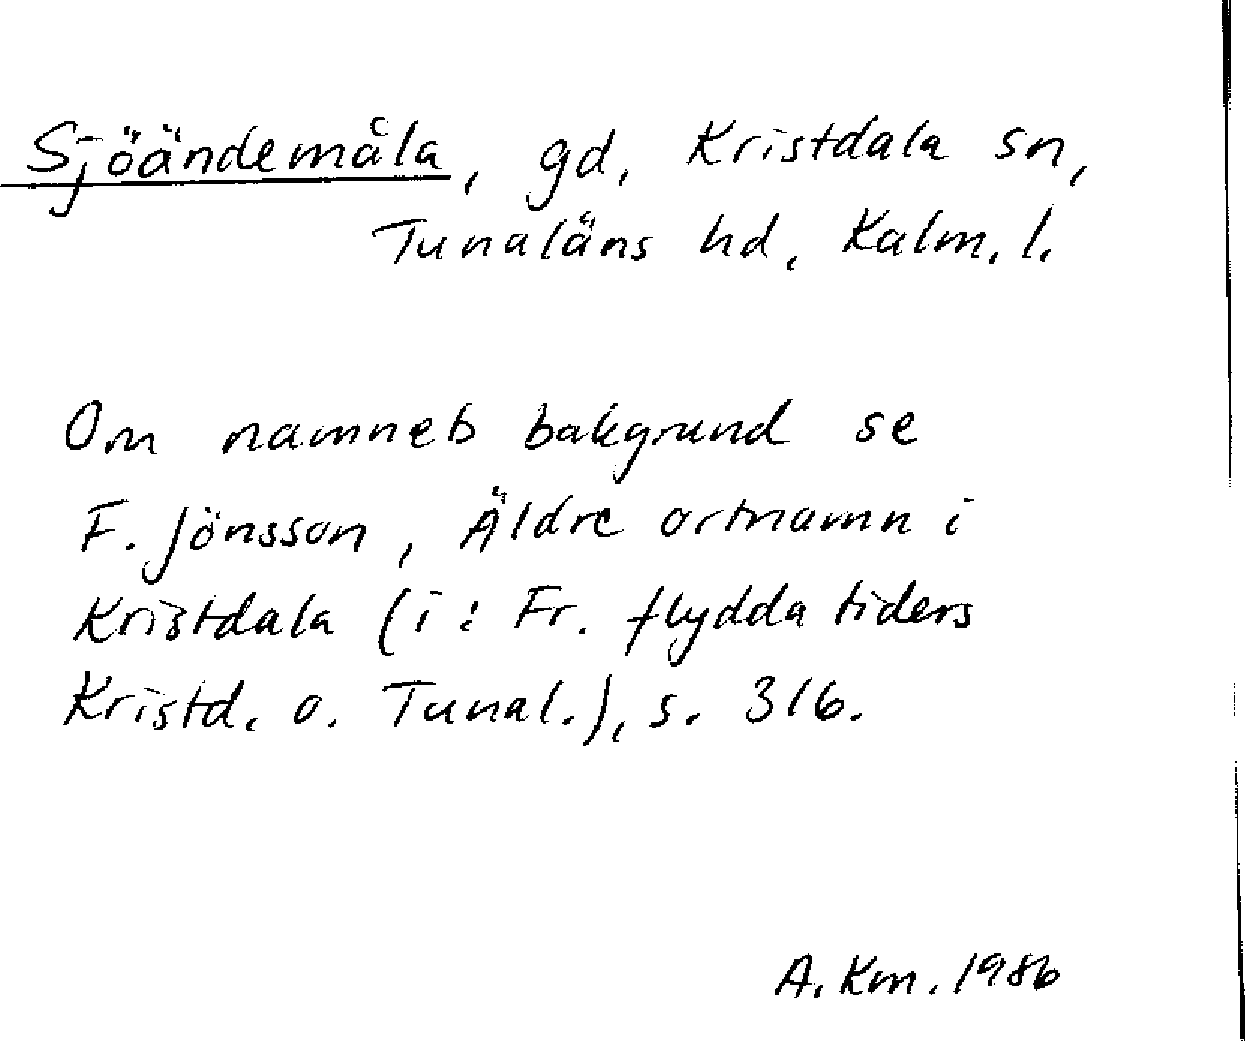 Sjöändemåla, gd, Kristdala sn,
Tunaläns hd, Kalm. l.
Om namnets bakgrund se
F. Jönsson, Äldre ortnamn i
Kristdala (i: Fr. flydda tiders
Kristd. o. Tunal.), s. 316.
A. Km. 1986